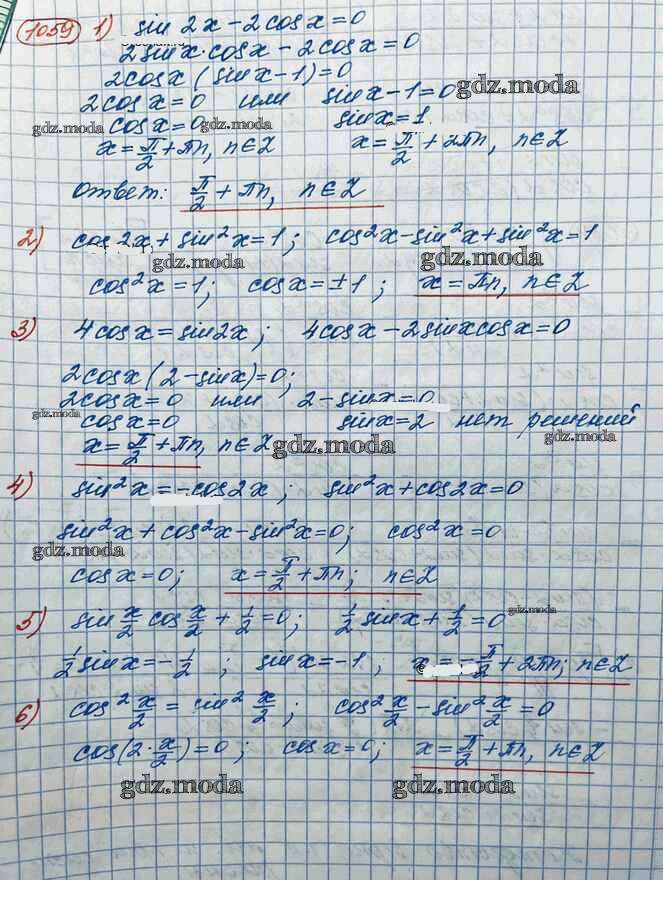 1059 1) sin 2x - 2cos x = 0
2 sin x · cos x - 2 cos x = 0
2 cos x (sin x - 1) = 0
2 cos x = 0 или sin x - 1 = 0 gdz.moda
gdz.moda cos x = 0 gdz.moda sin x = 1
x = π/2 + πn, n ∈ Z x = π/2 + 2πn, n ∈ Z
Ответ: π/2 + πn, n ∈ Z
2) cos 2x + sin²x = 1; cos²x - sin²x + sin²x = 1
gdz.moda gdz.moda
cos²x = 1; cos x = ±1; x = πn, n ∈ Z
3) 4cos x = sin 2x; 4cos x - 2 sin x cos x = 0
2 cos x (2 - sin x) = 0;
2 cos x = 0 или 2 - sin x = 0
gdz.moda cos x = 0 sin x = 2 нет решений
x = π/2 + πn, n ∈ Z gdz.moda gdz.moda
4) sin²x = -cos 2x; sin²x + cos 2x = 0
sin²x + cos²x - sin²x = 0; cos²x = 0
gdz.moda
cos x = 0; x = π/2 + πn; n ∈ Z
5) sin x/2 cos x/2 + 1/2 = 0; 1/2 sin x + 1/2 = 0 gdz.moda
1/2 sin x = -1/2; sin x = -1; x = -π/2 + 2πn; n ∈ Z
6) cos² x/2 = sin² x/2; cos² x/2 - sin² x/2 = 0
cos(2 · x/2) = 0; cos x = 0; x = π/2 + πn, n ∈ Z
gdz.moda gdz.moda